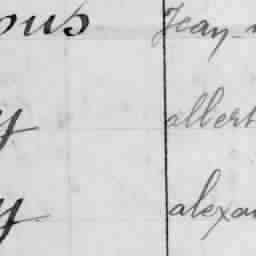 ous Jean-
y albert
y alexan